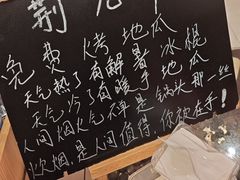 荆元
免费烤地瓜
天气热了有解暑冰棍
天气冷了有暖手地瓜
人间烟火气不单是锅头那一丝
炊烟是人间值得，你被在乎！